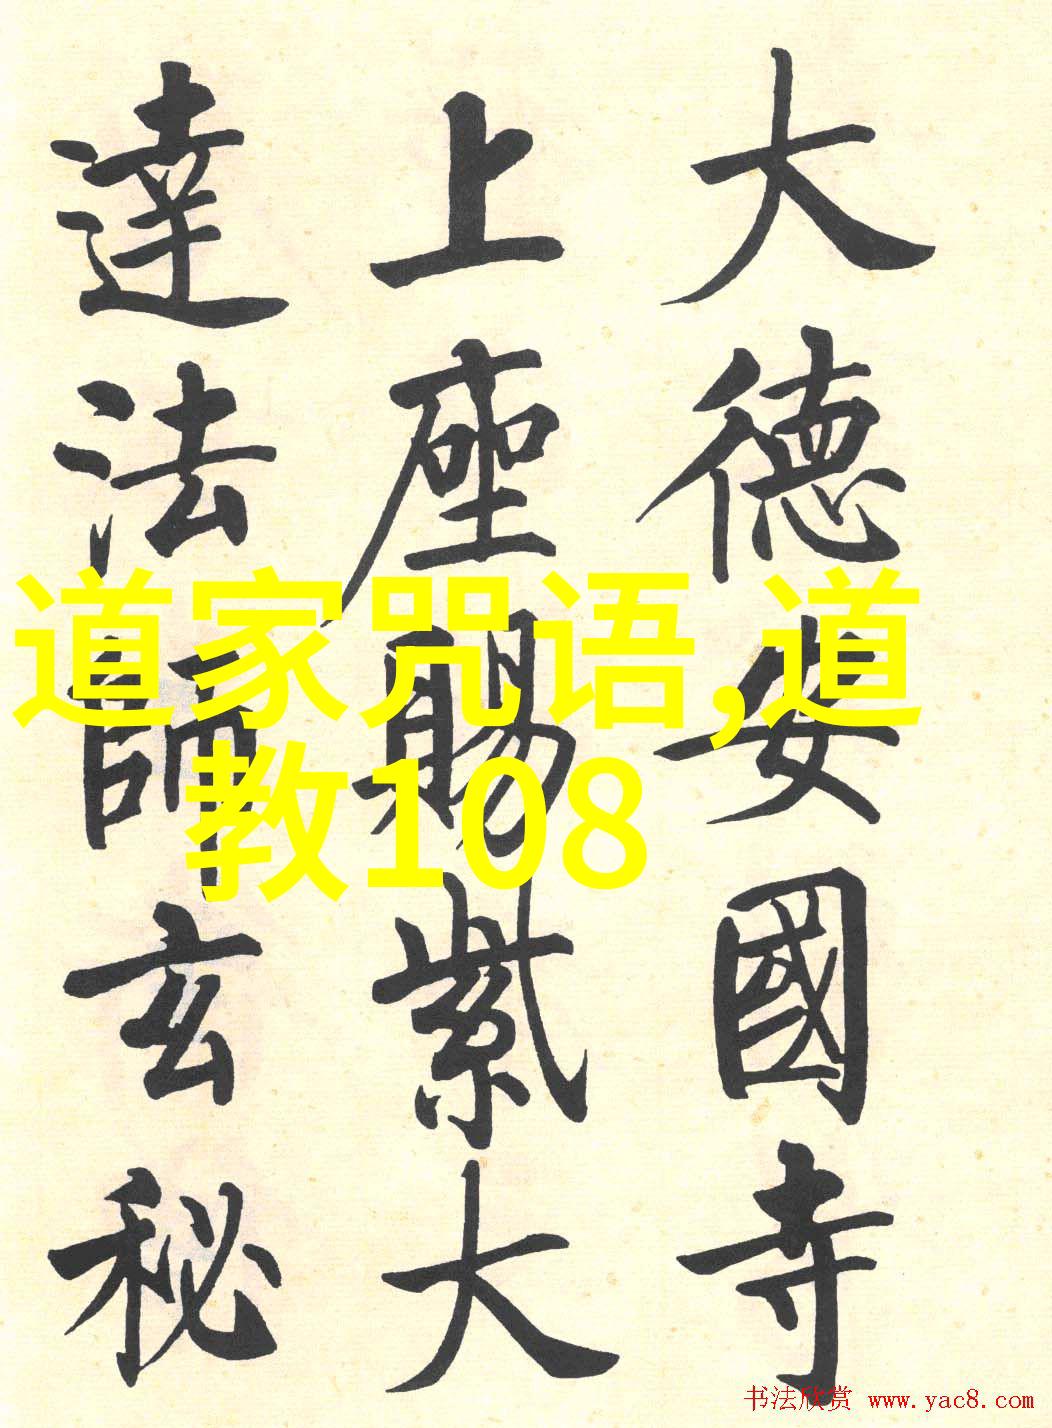 大德安國寺
上座賜紫大
達法師玄秘
道家咒语,道
教108
书法欣赏 www.yac8.com